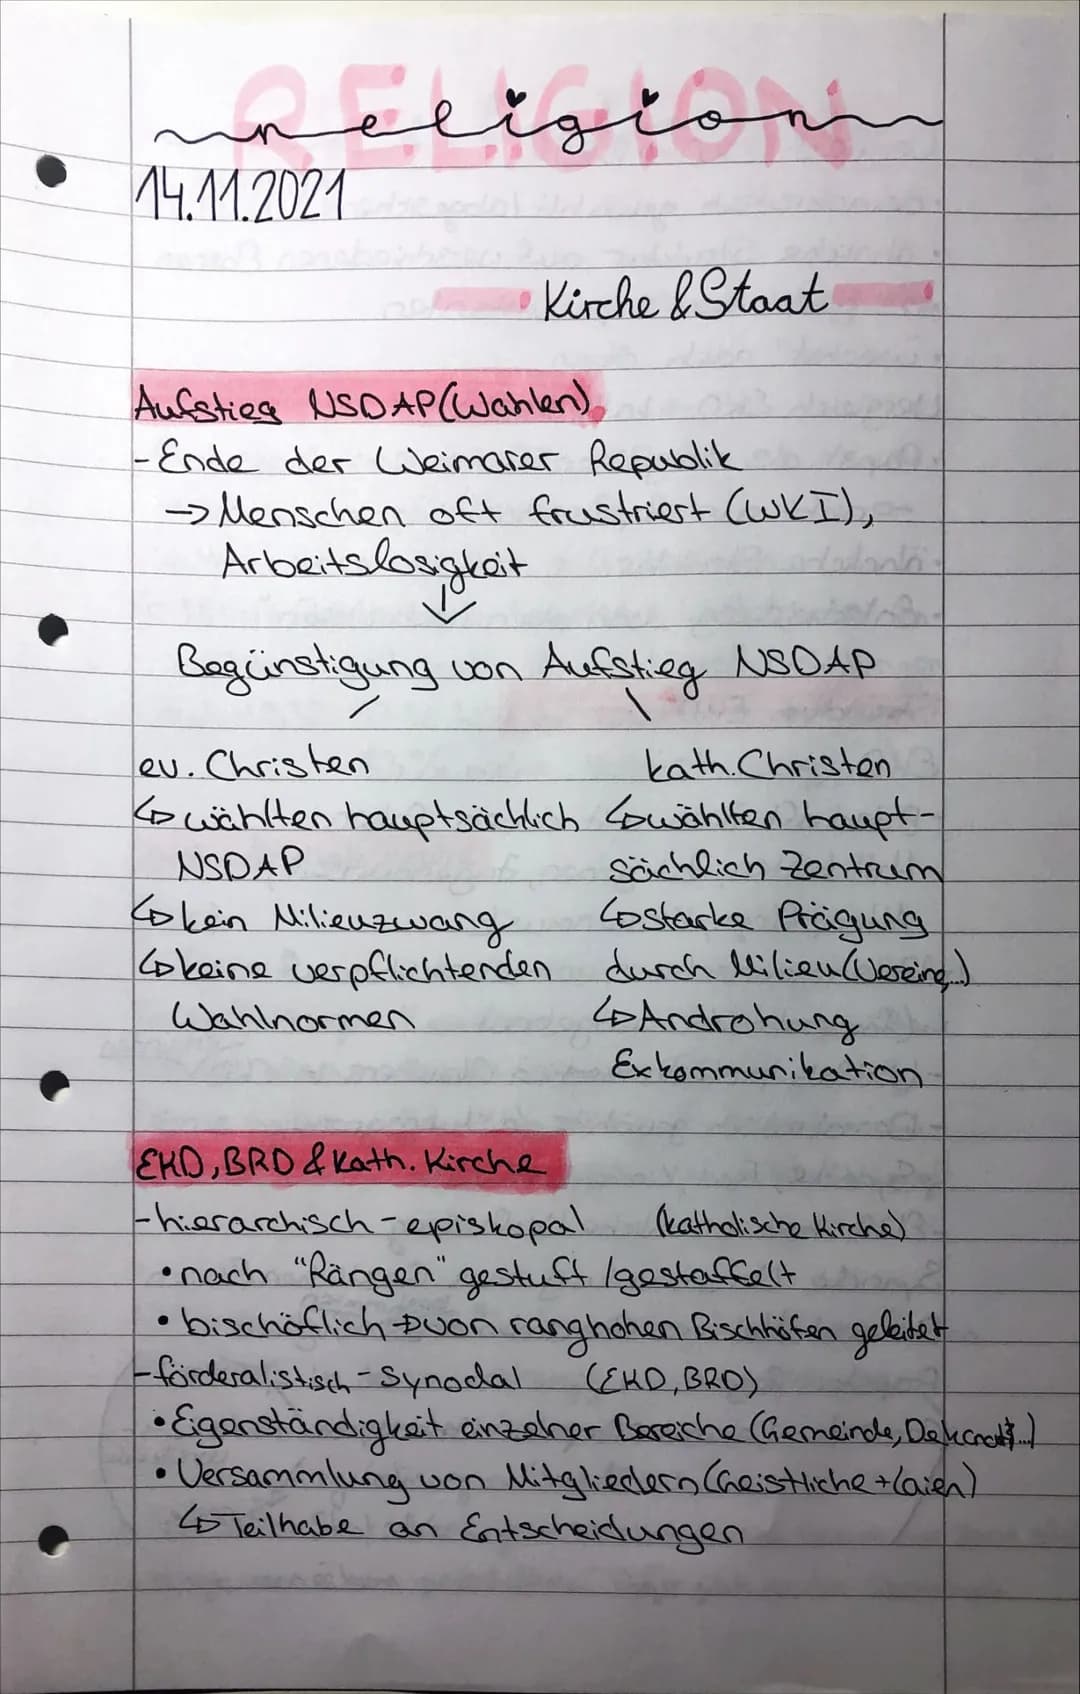 RELIGION
religion
14.11.2021
Kirche & Staat
Aufstieg NSDAP (Wahlen)
- Ende der Weimarer Republik
→ Menschen oft frustriert (WKI),
Arbeitslosigkeit
↓
Begünstigung von Aufstieg NSDAP
/ \
ev. Christen
↳ wählten hauptsächlich
NSDAP
↳ kein Milieuzwang
↳ keine verpflichtenden
Wahlnormen
kath. Christen
↳ wählten haupt-
sächlich Zentrum
↳ starke Prägung
durch Milieu (Vereine...)
↳ Androhung
Exkommunikation
EKD, BRD & kath. Kirche
- hierarchisch - episkopal (katholische Kirche)
• nach "Rängen" gestuft / gestaffelt
• bischöflich → von ranghohen Bischhöfen geleitet
- förderalistisch - Synodal (EKD, BRD)
• Eigenständigkeit einzelner Bereiche (Gemeinde, ...)
• Versammlung von Mitgliedern (Geistliche + Laien)
↳ Teilhabe an Entscheidungen